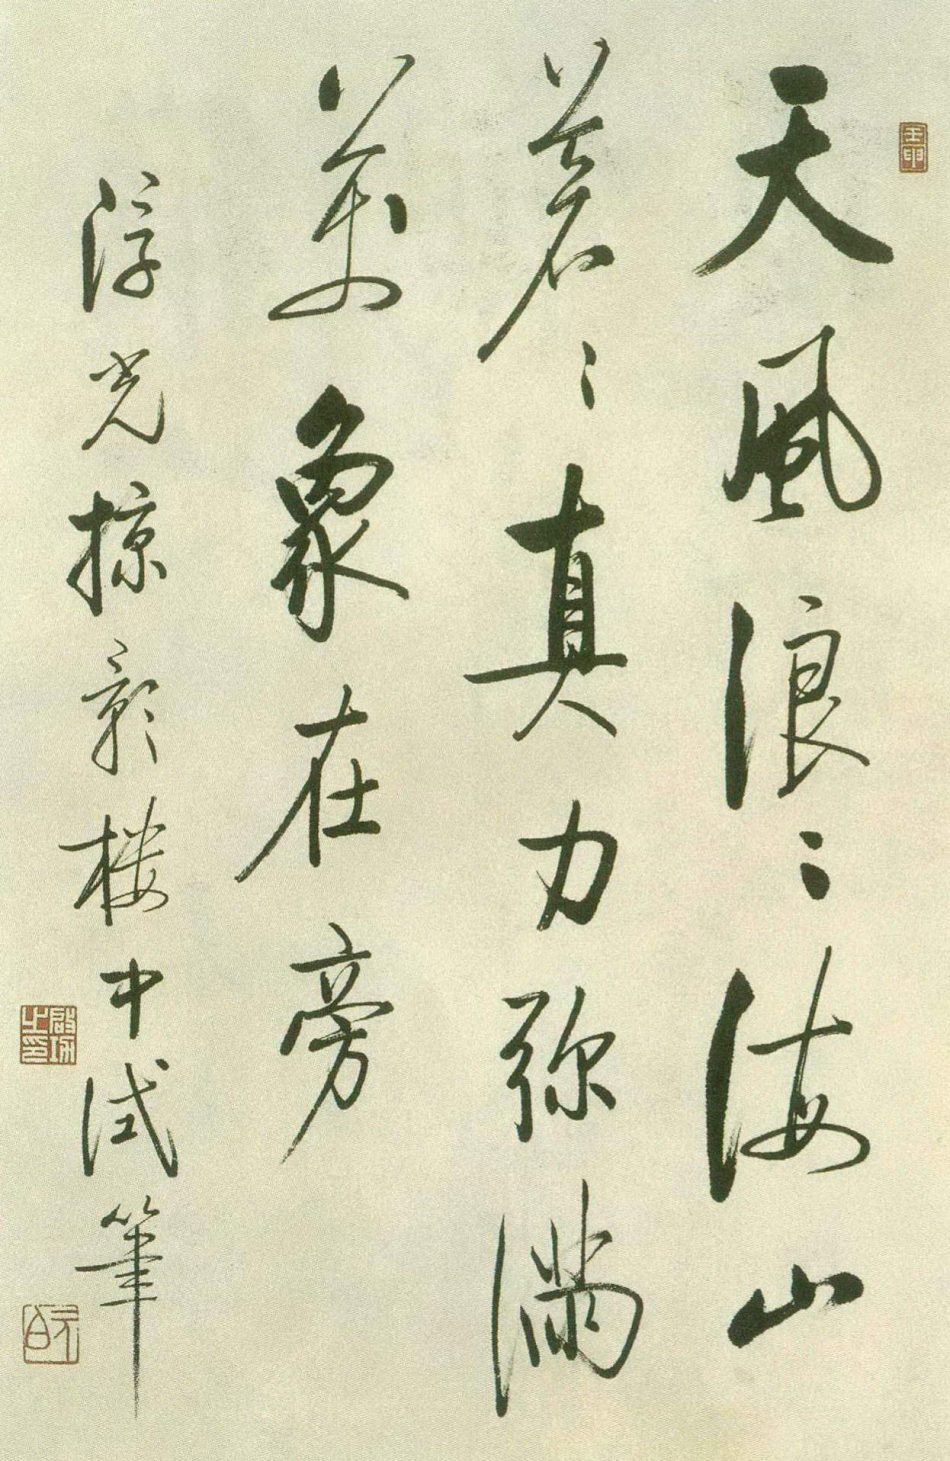 天風浪〻海山
蒼〻真力弥滿
萬象在旁
浮光掠影樓中试筆
啟功之印
元白